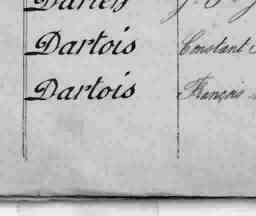 Dartois Constant
Dartois François